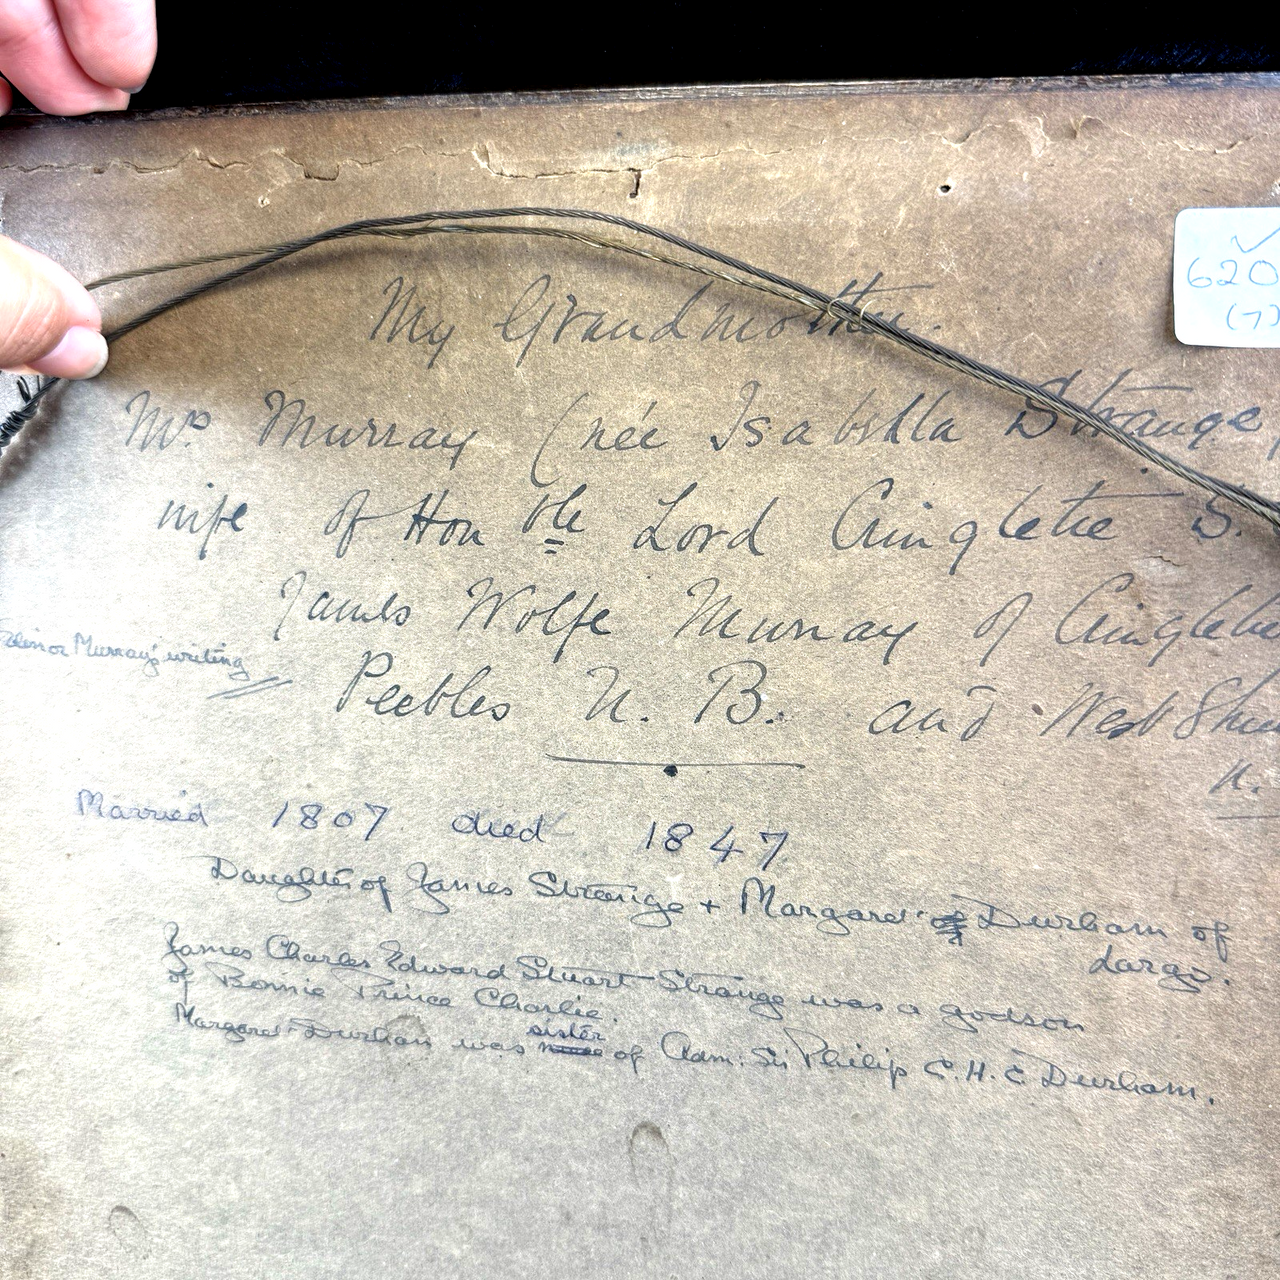 My Grandmother.
Mrs Murray (née Isabella Strange
wife of Honble Lord Cringletie S.
James Wolfe Murray of Cringletie
Murray's writing
Peebles N. B. and West
N.
Married 1807 died 1847
Daughter of James Strange + Margaret Durham of
Largo.
James Charles Edward Stuart Strange was a godson
of Bonnie Prince Charlie.
sister
Margaret Durham was of Adm: Sir Philip C. H. C Durham.
620
(7)